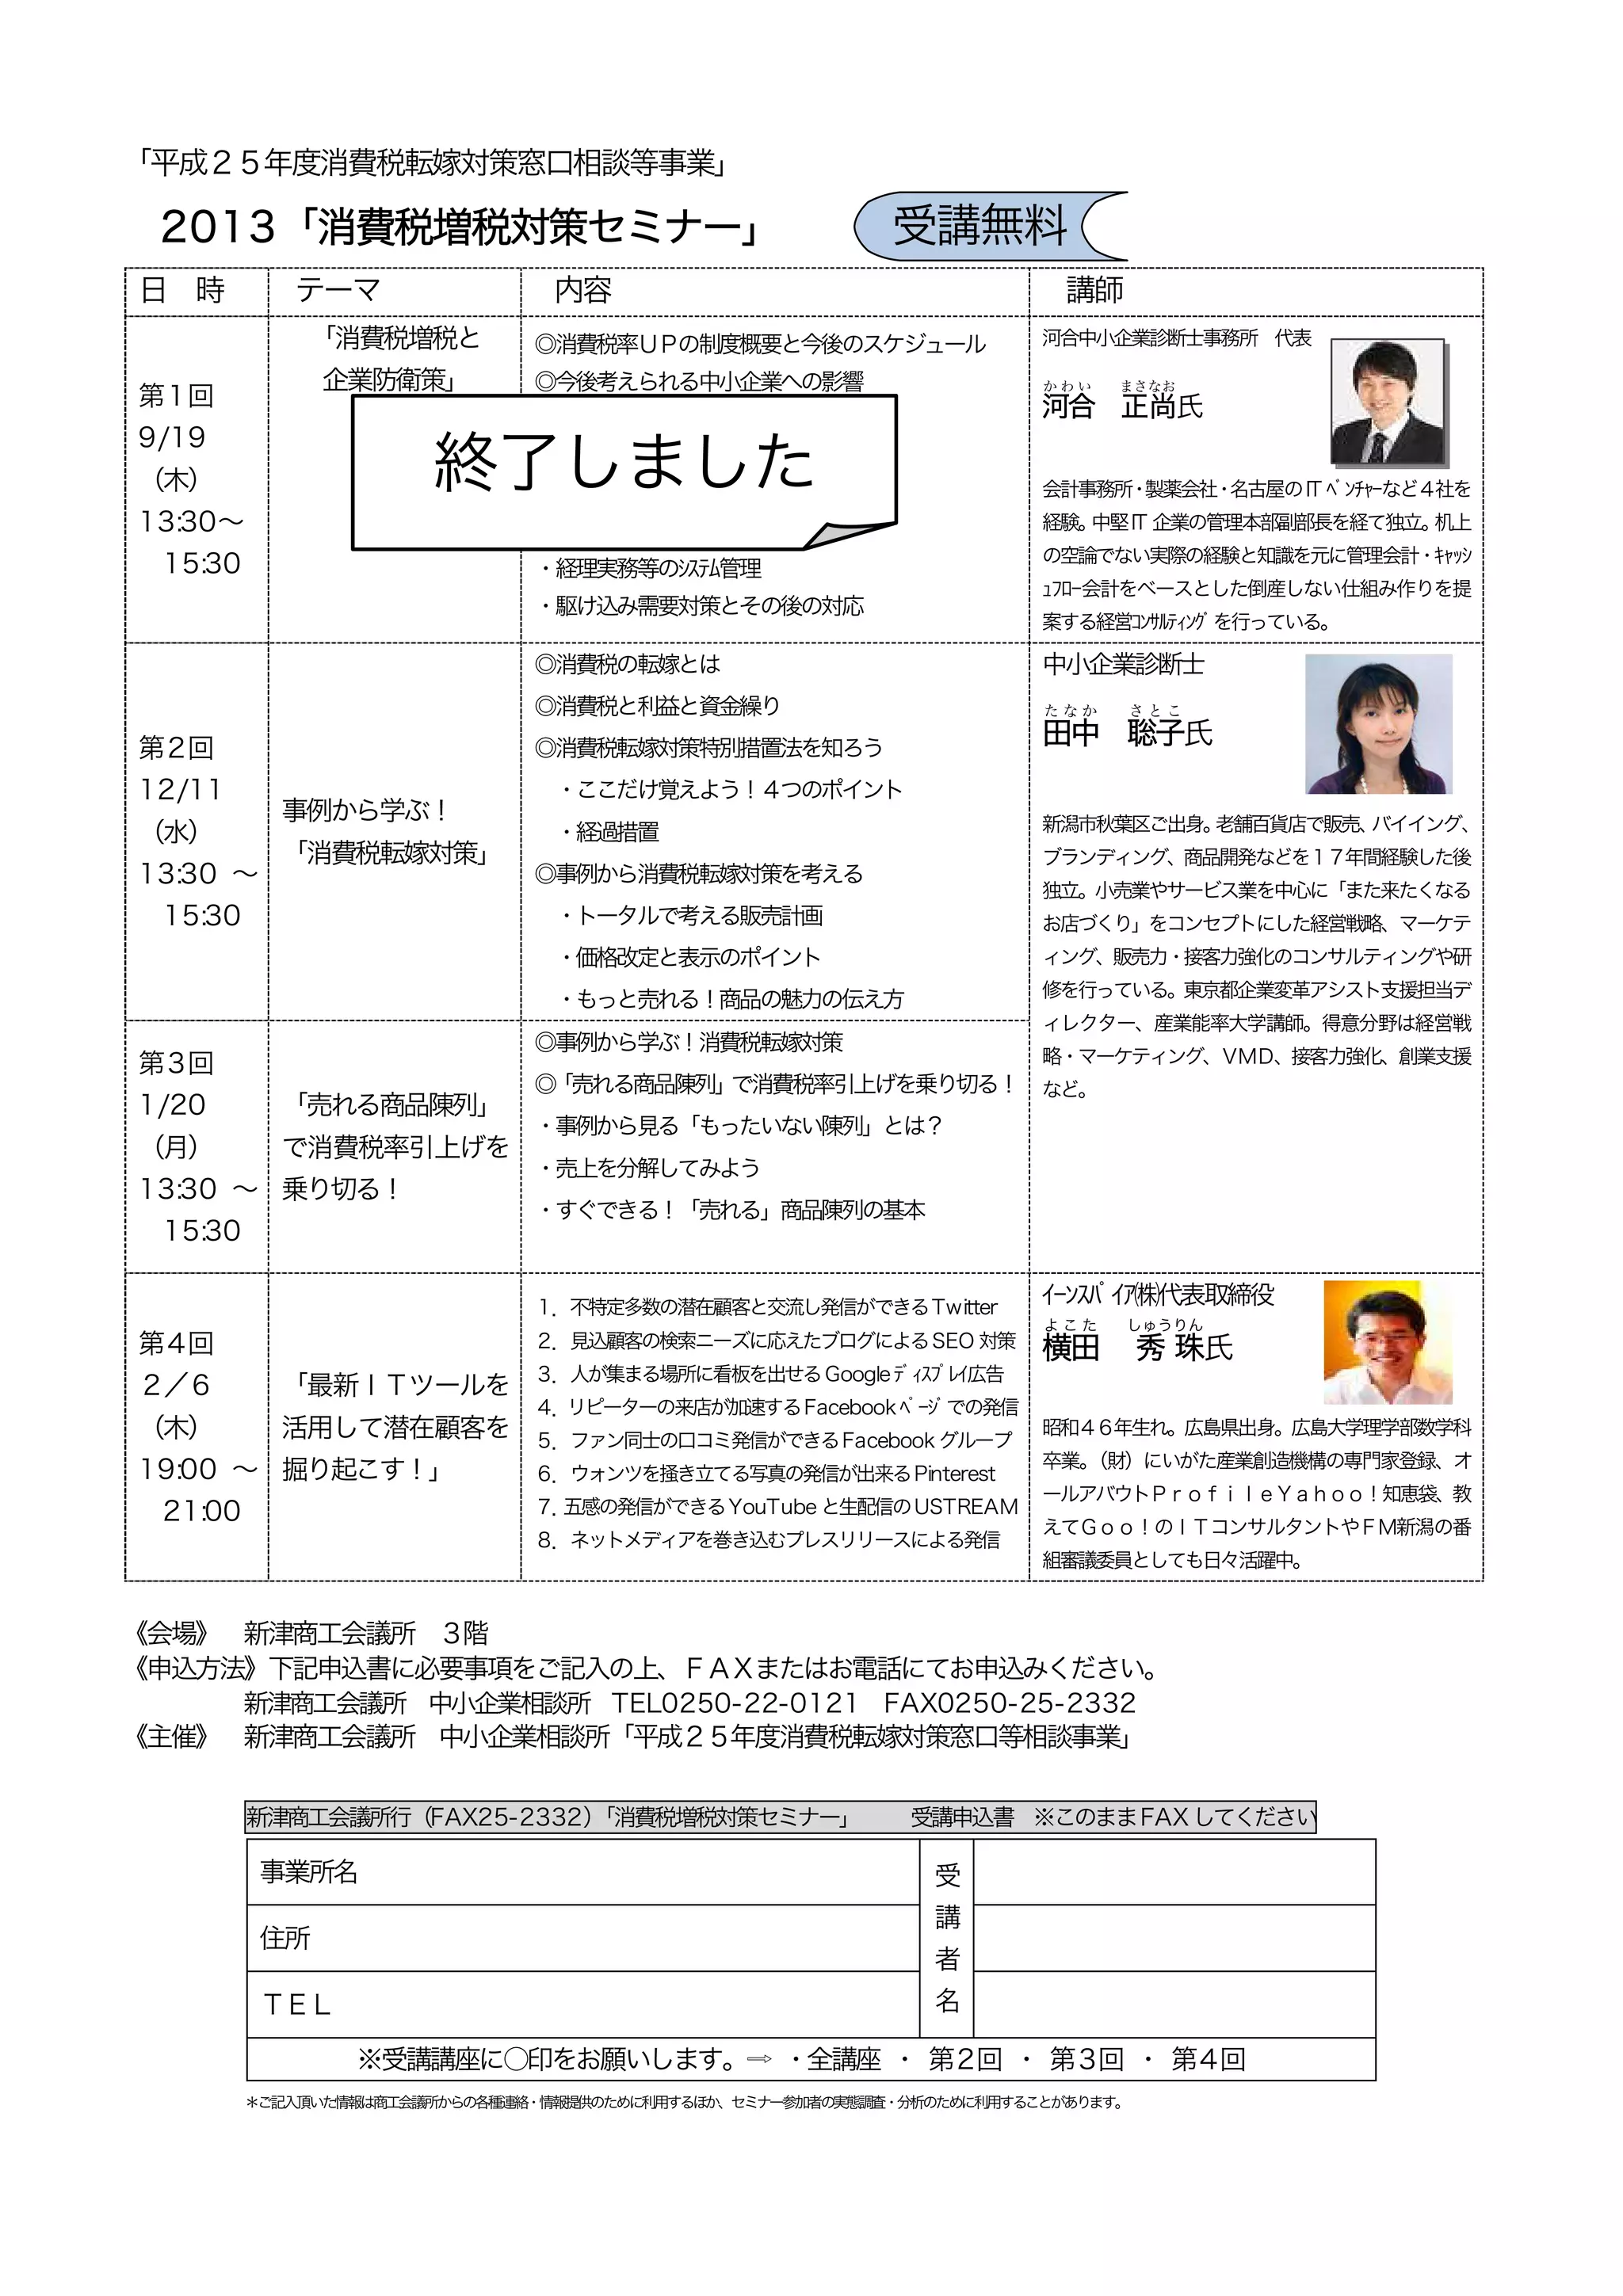 「平成２５年度消費税転嫁対策窓口相談等事業」
2013「消費税増税対策セミナー」
受講無料
日　時
テーマ
内容
講師
第１回
9/19
（木）
13:30～
15:30
「消費税増税と
企業防衛策」
◎消費税率ＵＰの制度概要と今後のスケジュール
◎今後考えられる中小企業への影響
終了しました
・経理実務等のｼｽﾃﾑ管理
・駆け込み需要対策とその後の対応
河合中小企業診断士事務所　代表
かわい　まさなお
河合　正尚氏
会計事務所・製薬会社・名古屋のITﾍﾞﾝﾁｬｰなど４社を
経験。中堅IT 企業の管理本部副部長を経て独立。机上
の空論でない実際の経験と知識を元に管理会計・ｷｬｯｼ
ｭﾌﾛｰ会計をベースとした倒産しない仕組み作りを提
案する経営ｺﾝｻﾙﾃｨﾝｸﾞを行っている。
第２回
12/11
（水）
13:30 ～
15:30
事例から学ぶ！
「消費税転嫁対策」
◎消費税の転嫁とは
◎消費税と利益と資金繰り
◎消費税転嫁対策特別措置法を知ろう
・ここだけ覚えよう！４つのポイント
・経過措置
◎事例から消費税転嫁対策を考える
・トータルで考える販売計画
・価格改定と表示のポイント
・もっと売れる！商品の魅力の伝え方
中小企業診断士
たなか　さとこ
田中　聡子氏
新潟市秋葉区ご出身。老舗百貨店で販売、バイイング、
ブランディング、商品開発などを１７年間経験した後
独立。小売業やサービス業を中心に「また来たくなる
お店づくり」をコンセプトにした経営戦略、マーケテ
ィング、販売力・接客力強化のコンサルティングや研
修を行っている。東京都企業変革アシスト支援担当デ
ィレクター、産業能率大学講師。得意分野は経営戦
略・マーケティング、VMD、接客力強化、創業支援
など。
第３回
1/20
（月）
13:30 ～
15:30
「売れる商品陳列」
で消費税率引上げを
乗り切る！
◎事例から学ぶ！消費税転嫁対策
◎「売れる商品陳列」で消費税率引上げを乗り切る！
・事例から見る「もったいない陳列」とは？
・売上を分解してみよう
・すぐできる！「売れる」商品陳列の基本
第４回
２／６
（木）
19:00 ～
21:00
「最新ＩＴツールを
活用して潜在顧客を
掘り起こす！」
1．不特定多数の潜在顧客と交流し発信ができるTwitter
2．見込顧客の検索ニーズに応えたブログによるSEO 対策
3．人が集まる場所に看板を出せるGoogleﾃﾞｨｽﾌﾟﾚｲ広告
4．リピーターの来店が加速するFacebookﾍﾟｰｼﾞでの発信
5．ファン同士の口コミ発信ができるFacebook グループ
6．ウォンツを掻き立てる写真の発信が出来るPinterest
7．五感の発信ができるYouTube と生配信のUSTREAM
8．ネットメディアを巻き込むプレスリリースによる発信
ｲｰﾝｽﾊﾟｲｱ㈱代表取締役
よこた　しゅうりん
横田　秀 珠氏
昭和４６年生れ。広島県出身。広島大学理学部数学科
卒業。（財）にいがた産業創造機構の専門家登録、オ
ールアバウトＰｒｏｆｉｌｅＹａｈｏｏ！知恵袋、教
えてＧｏｏ！のＩＴコンサルタントやＦＭ新潟の番
組審議委員としても日々活躍中。
《会場》　新津商工会議所　３階
《申込方法》下記申込書に必要事項をご記入の上、ＦＡＸまたはお電話にてお申込みください。
新津商工会議所　中小企業相談所　TEL0250-22-0121　FAX0250-25-2332
《主催》　新津商工会議所　中小企業相談所「平成２５年度消費税転嫁対策窓口等相談事業」
新津商工会議所行（FAX25-2332）「消費税増税対策セミナー」　　受講申込書　※このままFAX してください
事業所名
住所
ＴＥＬ
受講者名
※受講講座に○印をお願いします。⇨ ・全講座 ・ 第２回 ・ 第３回 ・ 第４回
＊ご記入頂いた情報は商工会議所からの各種連絡・情報提供のために利用するほか、セミナー参加者の実態調査・分析のために利用することがあります。